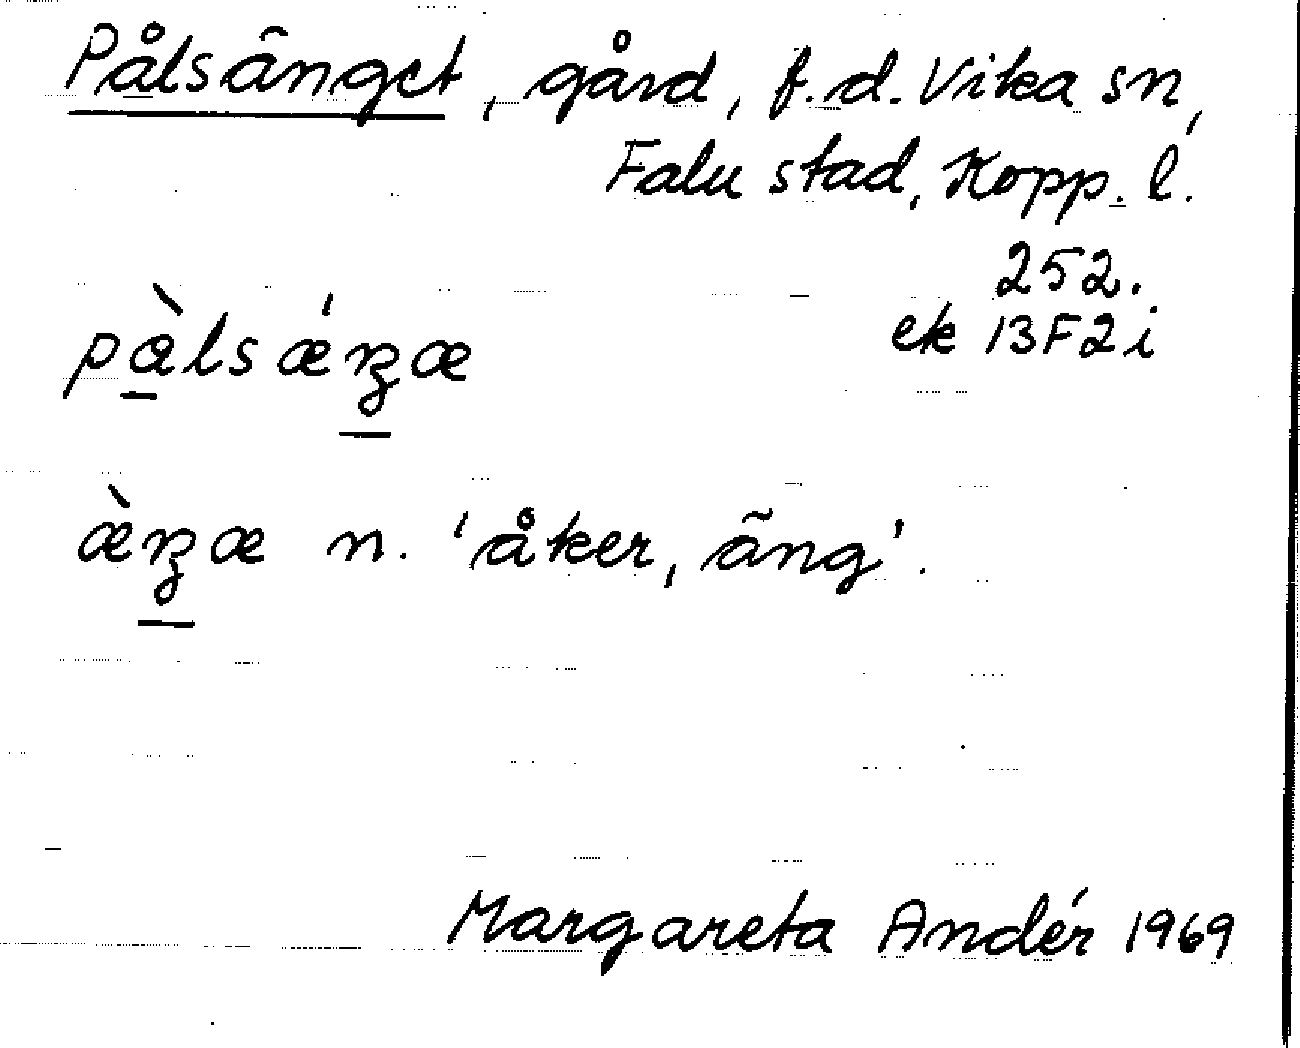 Pålsänget, gård, f.d. Vika sn,
Falu stad, Kopp. l.
252.
ek 13F2i
pàlsǽŋæ
æ̀ŋæ n. 'åker, äng'.
Margareta Andér 1969